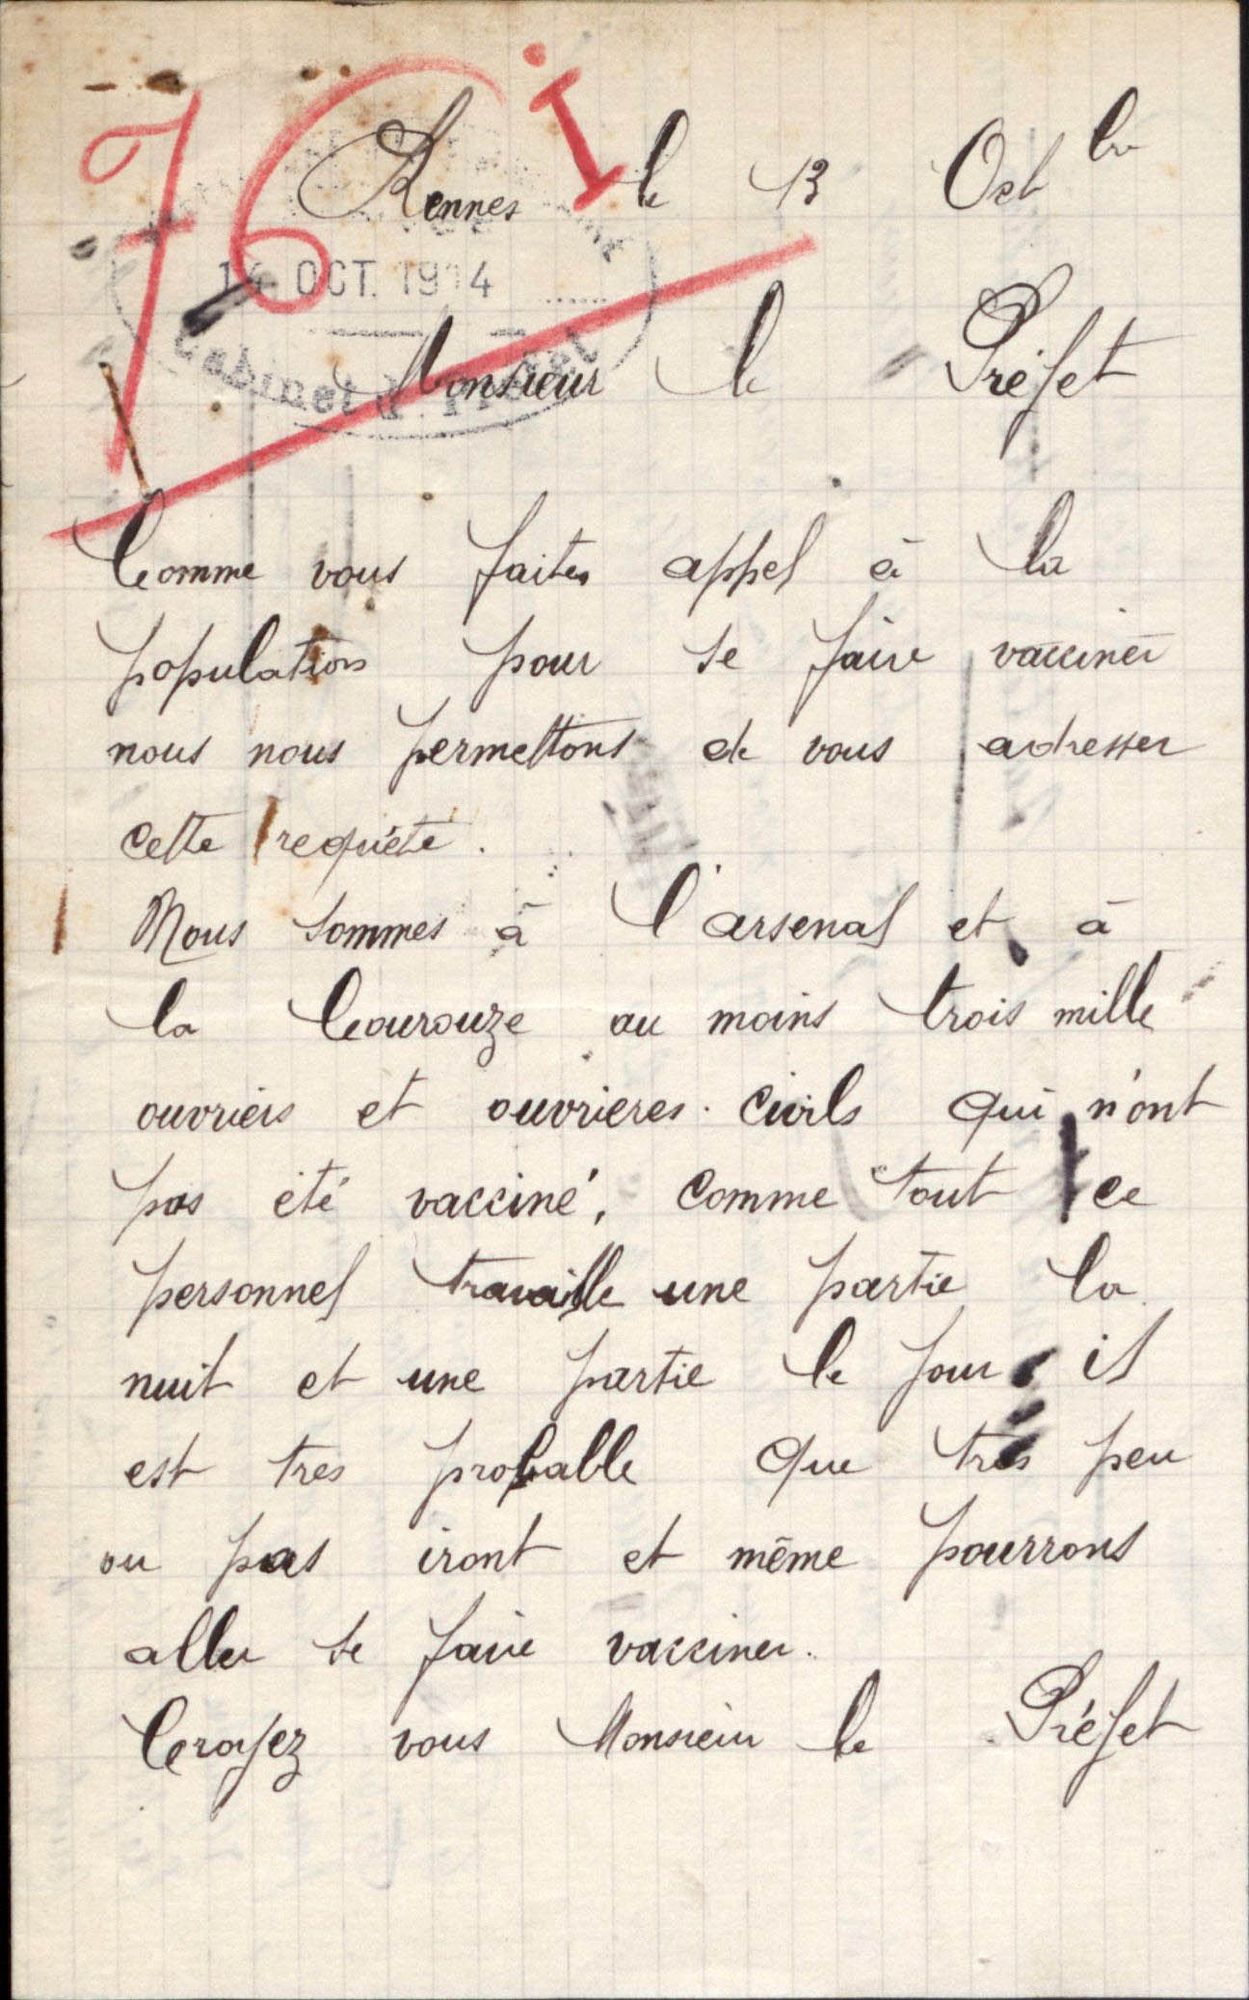 76 I
Rennes le 13 Oct bre
14 OCT. 1914
Cabinet du Préfet
Monsieur le Préfet
Comme vous faites appel à la
population pour se faire vacciner
nous nous permettons de vous adresser
cette requête.
Nous sommes à l'arsenal et à
la Courouze au moins trois mille
ouvriers et ouvrieres civils qui n'ont
pas été vacciné, comme tout ce
personnel travaille une partie la
nuit et une partie le jour il
est tres probable que très peu
ou pas iront et même pourrons
aller se faire vacciner.
Croyez vous Monsieur le Préfet